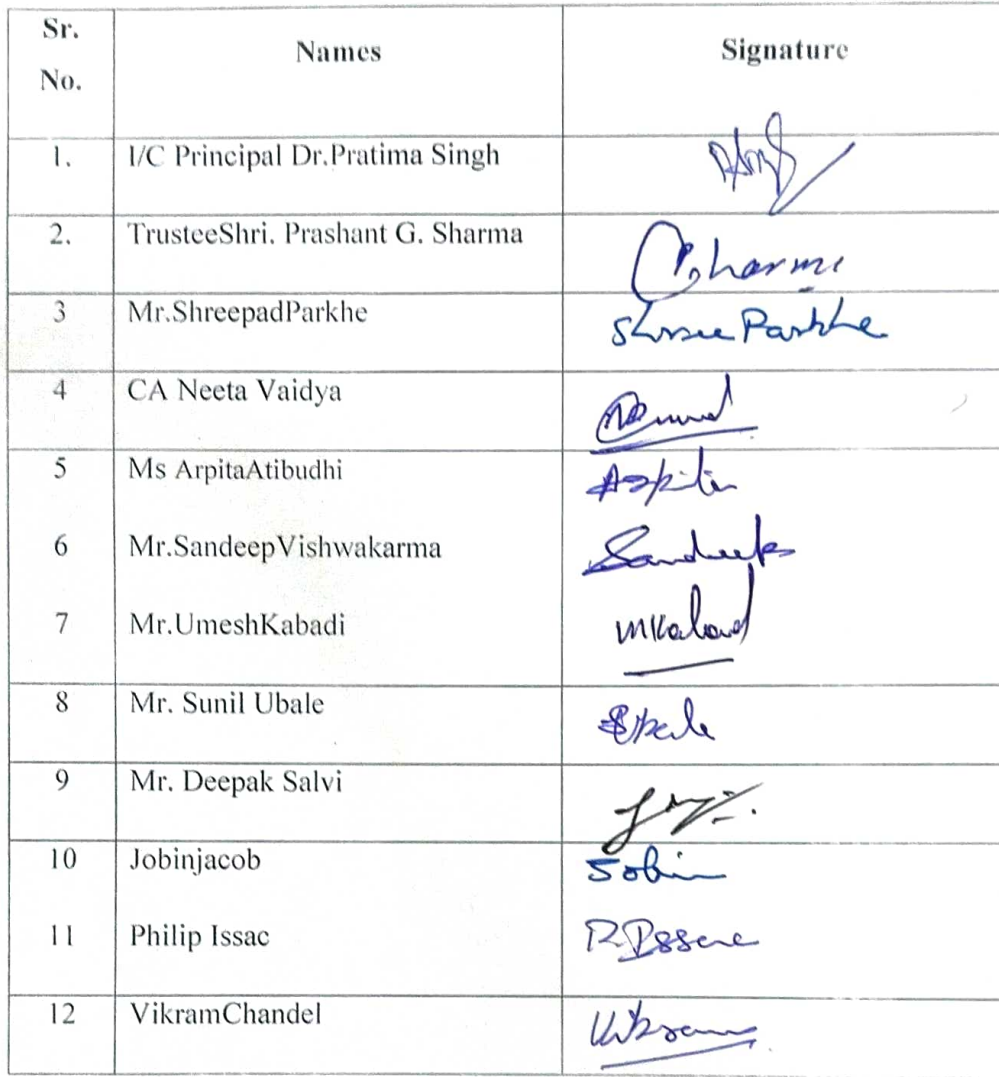 Sr.
No.
Names
Signature
1.
I/C Principal Dr.Pratima Singh
2.
TrusteeShri. Prashant G. Sharma
3
Mr.ShreepadParkhe
Shree Parkhe
4
CA Neeta Vaidya
5
Ms ArpitaAtibudhi
Arpita
6
Mr.SandeepVishwakarma
Sandeep
7
Mr.UmeshKabadi
8
Mr. Sunil Ubale
9
Mr. Deepak Salvi
10
Jobinjacob
Jobin
11
Philip Issac
12
VikramChandel
Vikram